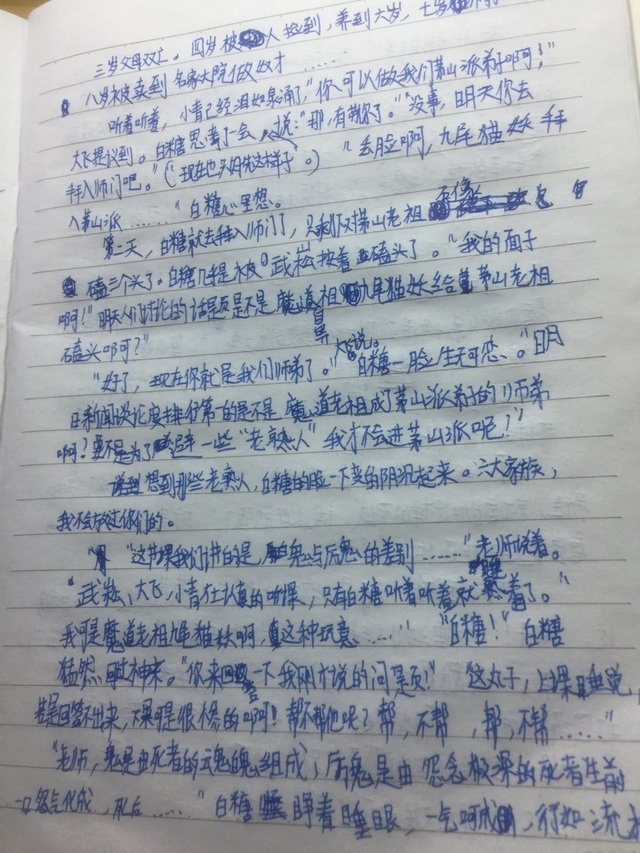 三岁父母双亡。四岁被人捡到，养到六岁，七岁
八岁被卖到名家大院做奴才……
听着听着，小青已经泪如泉涌，"你可以做我们茅山派弟子啊！"
大飞提议到。白糖思考了一会，说："那，有劳了。""没事，明天你去
拜入师门吧。"（现在也只好先这样子。）"丢脸啊，九尾猫妖拜
入茅山派……"白糖心里想。
第二天，白糖就去拜入师门了，只剩下对茅山老祖
磕三个头了。白糖几乎是被武崧按着磕头了。"我的面子
啊！"明天人们讨论的话题是不是魔道祖九尾猫妖给茅山老祖
磕头叩可？"
"好了，现在你就是我们师弟了。"大飞说。白糖一脸生无可恋。"明
日新闻谈论要排行第一的是不是魔道老祖成了茅山派弟子的师弟
啊？要不是为了避一些"老熟人"我才不会进茅山派呢？"
想到那些老熟人，白糖的脸一下变的阴沉起来。六大家族，
我不会放过你们的。
"这节课我们讲的是，鬼与厉鬼的差别……"老师说着。
"武崧，大飞，小青在认真的听课，只有白糖听着听着就睡着了。"
我可是魔道老祖九尾猫妖啊，真这种玩意……""白糖！"白糖
猛然回过神来。"你来回答一下我刚才说的问题！"这丸子，上课睡觉，
若是回答不出来，下场可是很惨的啊！帮不帮他呢？帮，不帮，帮，不帮……"
"老师，鬼是由死者的灵魂组成，厉鬼是由怨念极深的死者生前
一口怨气化成，死后……"白糖睁着睡眼，一气呵成，行如流水